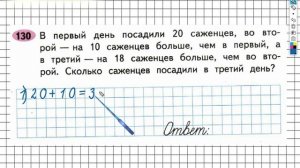 130 В первый день посадили 20 саженцев, во вто-
рой — на 10 саженцев больше, чем в первый, а
в третий — на 18 саженцев больше, чем во вто-
рой. Сколько саженцев посадили в третий день?
1) 20 + 10 = 3
Ответ: